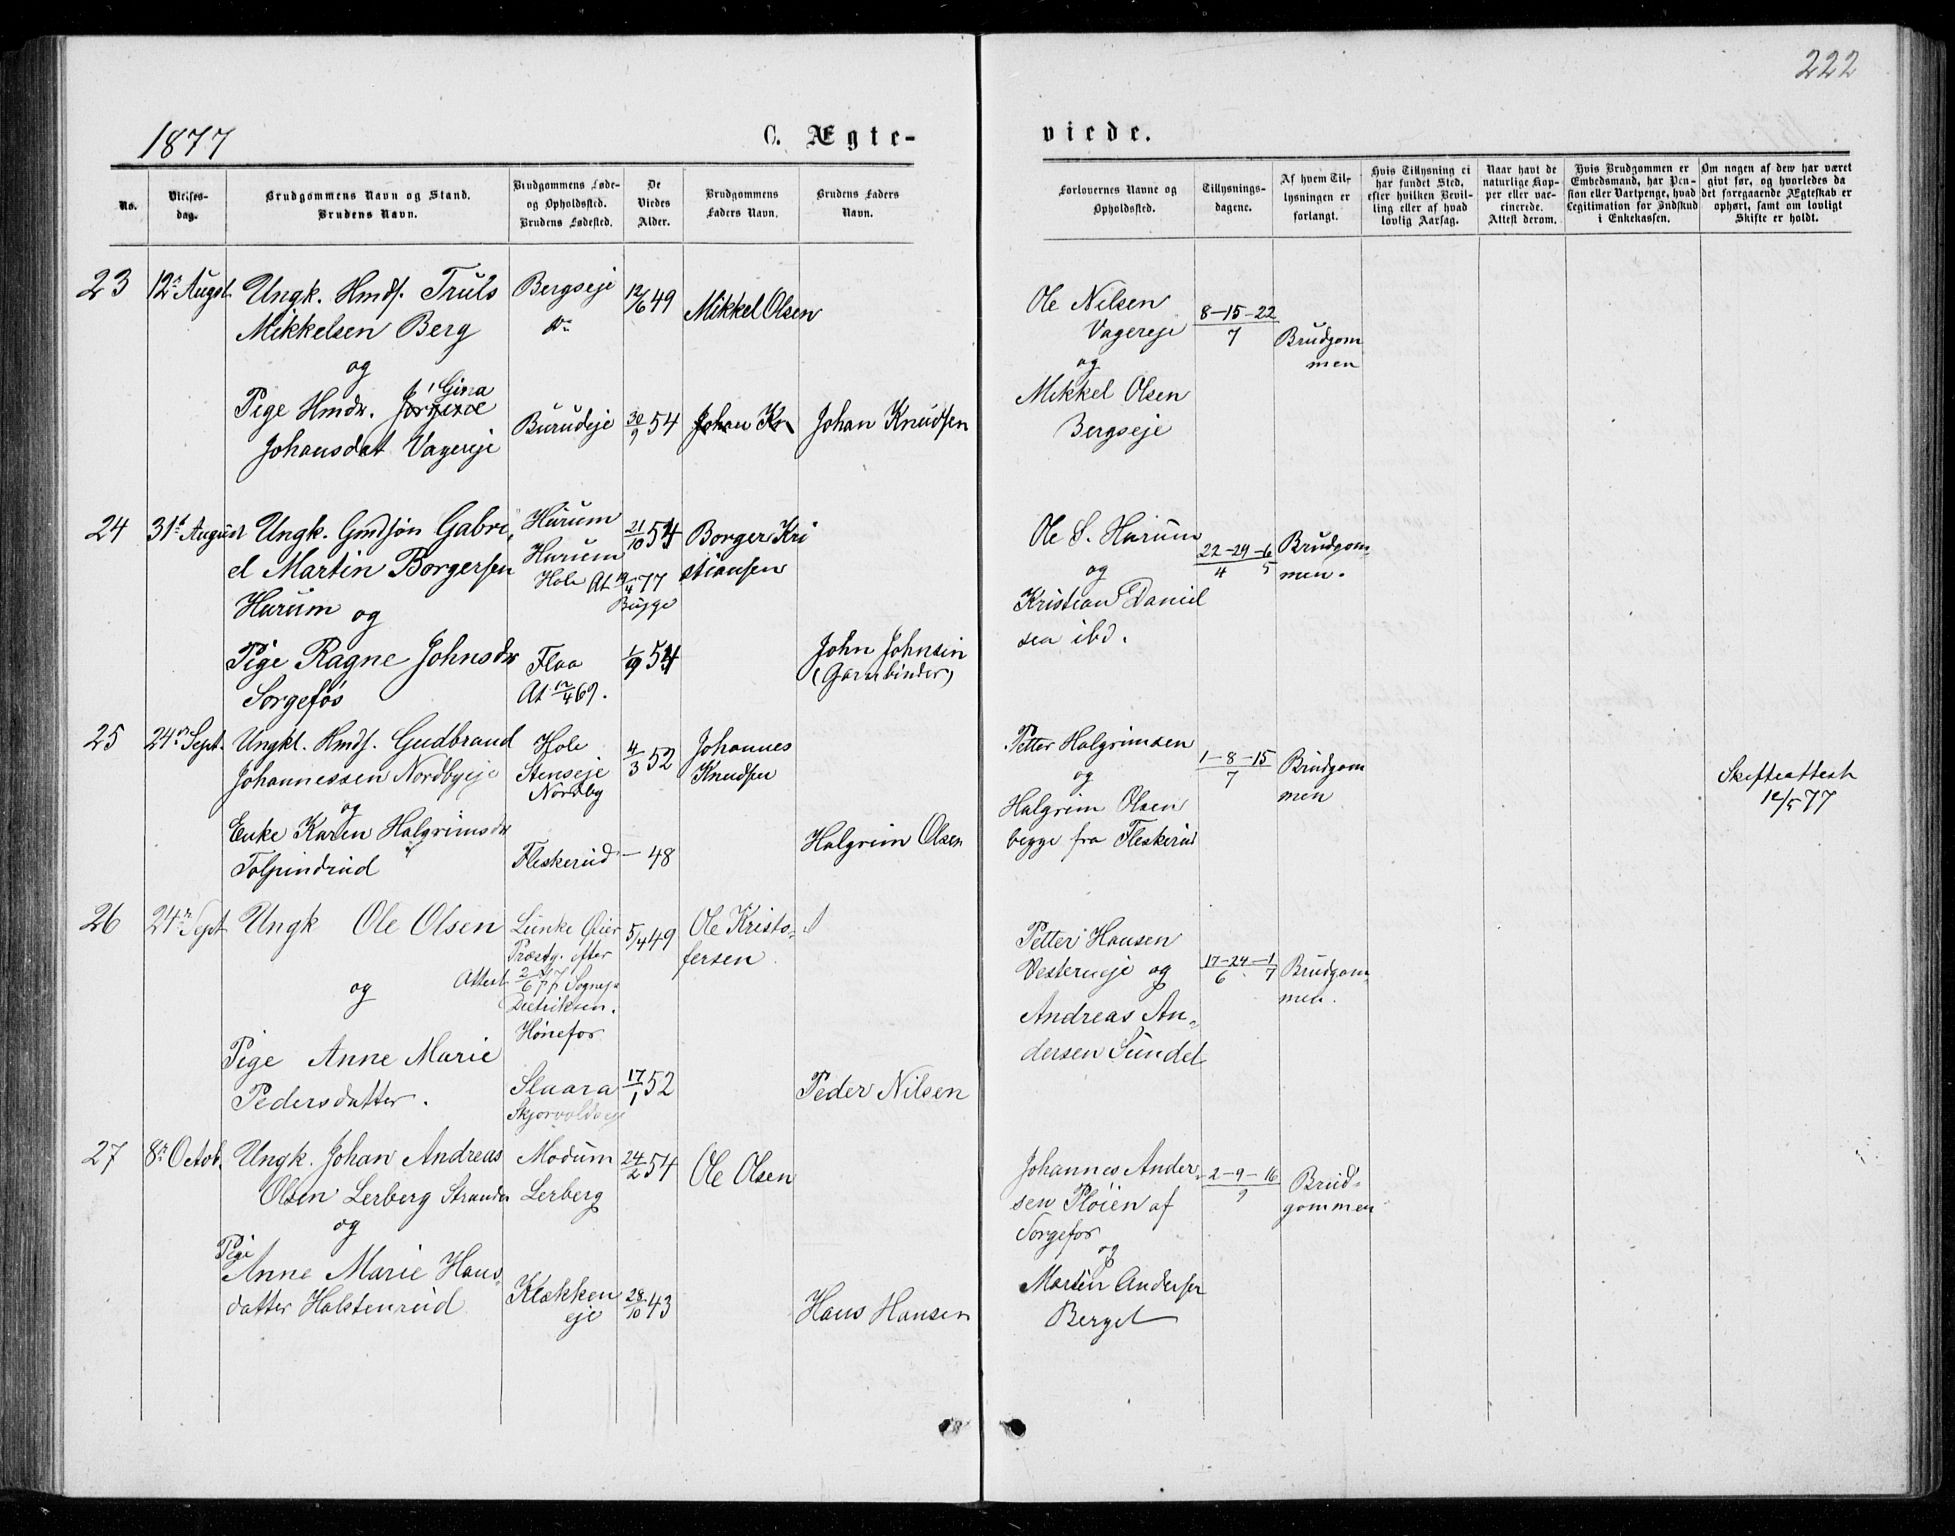 222
1877
C. Ægte-
viede.
No.
Vielses-
dag.
Brudgommens Navn og Stand.
Brudens Navn.
Brudgommens Føde-
og Opholdssted.
Brudens Fødested.
De
Viedes
Alder.
Brudgommens
Faders Navn.
Brudens Faders
Navn.
Forlovernes Navne og
Opholdsted.
Tillysnings-
dagene.
Af hvem Til-
lysningen er
forlangt.
Hvis Tillysning ei
har fundet Sted,
efter hvilken Bevil-
ling eller af hvad
lovlig Aarsag.
Naar havt de
naturlige Kop-
per eller vac-
cinerede.
Attest derom.
Hvis Brudgommen er
Embedsmand, har Pen-
sion eller Vartpenge, hvad
Legitimation for Indskud
i Enkekassen.
Om nogen af dem har været
givt før, og hvorledes da
det foregaaende Ægteskab er
ophørt, samt om lovligt
Skifte er holdt.
23
12te August
Ungk. Hmds. Truls
Mikkelsen Berg
og
Gina
Pige Hmdr. Jørgine
Johansdat Vagereje
Bergseje
do
Burudeje
12/6 49
30/9 54
Mikkel Olsen
Johan Kn
Johan Knudsen
Ole Nilsen
Vagereje
og
Mikkel Olsen
Bergseje
8-15-22
7
Brudgom
men
24
31te August
Ungk. Gmdsøn Gabri
el Martin Borgersen
Harum og
Pige Ragne Johnsdr
Sorgefos
Harum
Harum
Hole At 19/4 77
Bugge
Flaa
At 12/4 69.
21/10 54
1/9 54
Borger Kri
stiansen
John Johnsen
(Garnbinder)
Ole S. Harum
og
Kristian Daniel
sen ibd.
22-29-6
4 5
Brudgom-
men.
25
24de Sept.
Ungkl. Hmds. Gudbrand
Johannessen Nordbyeje
og
Enke Karen Halgrimsdr
Tolpindrud
Hole
Stenseje
Nordby
Fleskerud
4/3 52
- 48
Johannes
Knudsen
Halgrim Olsen
Petter Halgrimsen
og
Halgrim Olsen
begge fra Fleskerud
1-8-15
7
Brudgom
men
Skifteattest
12/5 77
26
24de Sept
Ungk Ole Olsen
og
Pige Anne Marie
Pedersdatter.
Lunke Øier
Præstg. efter
Attest 2/6 77 Sognep.
Diedriksen.
Hønefos
Slaara
Skjorvoldseje
5/4 49
17/1 52
Ole Kristo-
fersen
Peder Nilsen
Petter Hansen
Vesterneje og
Andreas An-
dersen Sundet
17-24-1
6 7
Brudgom-
men.
27
8de Octob.
Ungk. Johan Andreas
Olsen Lerberg Stranden
og
Pige
Anne Marie Hans-
datter Halstenrud
Modum
Lerberg
Klækken
eje
24/2 54
28/10 43
Ole Olsen
Hans Hansen
Johannes Ander-
sen Pløien af
Sorgefos
og
Martin Andersen
Berget
2-9-16
9
Brud-
gommen